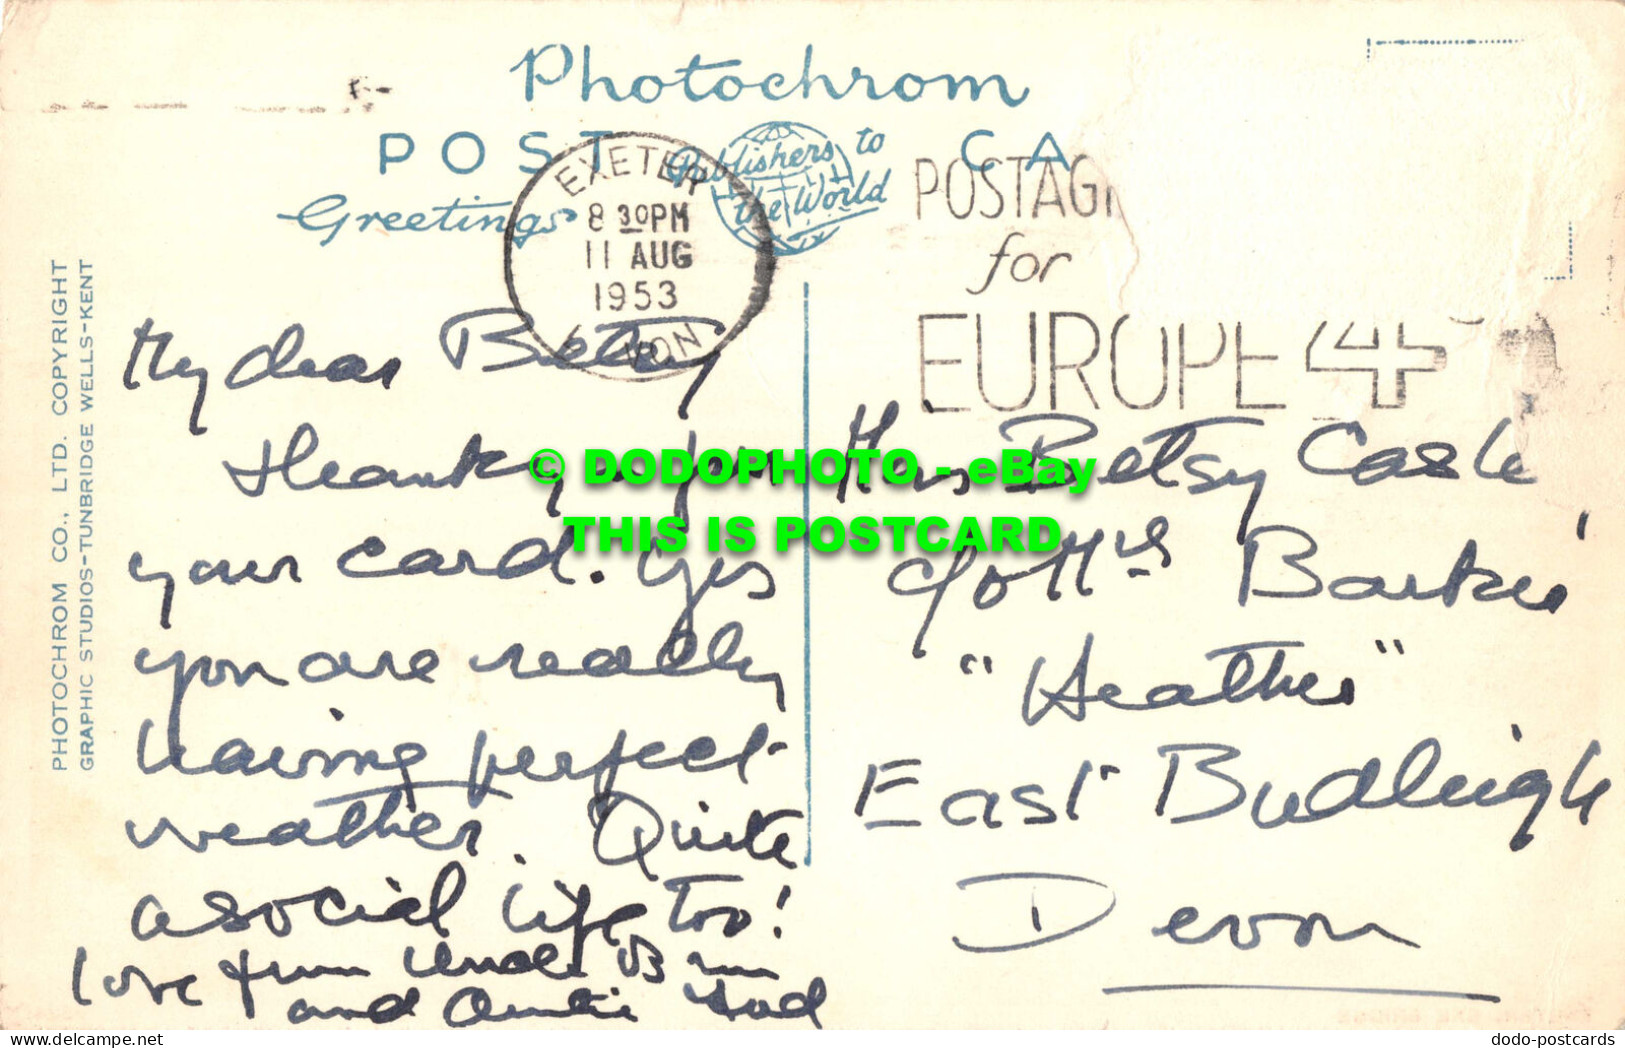 Photochrom
POST CA
Publishers to
the World
Greetings
EXETER
8 30PM
11 AUG
1953
DEVON
POSTAG
for
EUROPE 4
PHOTOCHROM CO., LTD. COPYRIGHT
GRAPHIC STUDIOS-TUNBRIDGE WELLS-KENT
My dear Betsy
Thank you for
your card. Yes
you are really
having perfect
weather. Quite
a social life too!
love from Uncle
and Auntie
Miss Betsy Casle
c/o Mrs Barker
"Heather"
East Budleigh
Devon
© DODOPHOTO - eBay
THIS IS POSTCARD
dodo-postcards